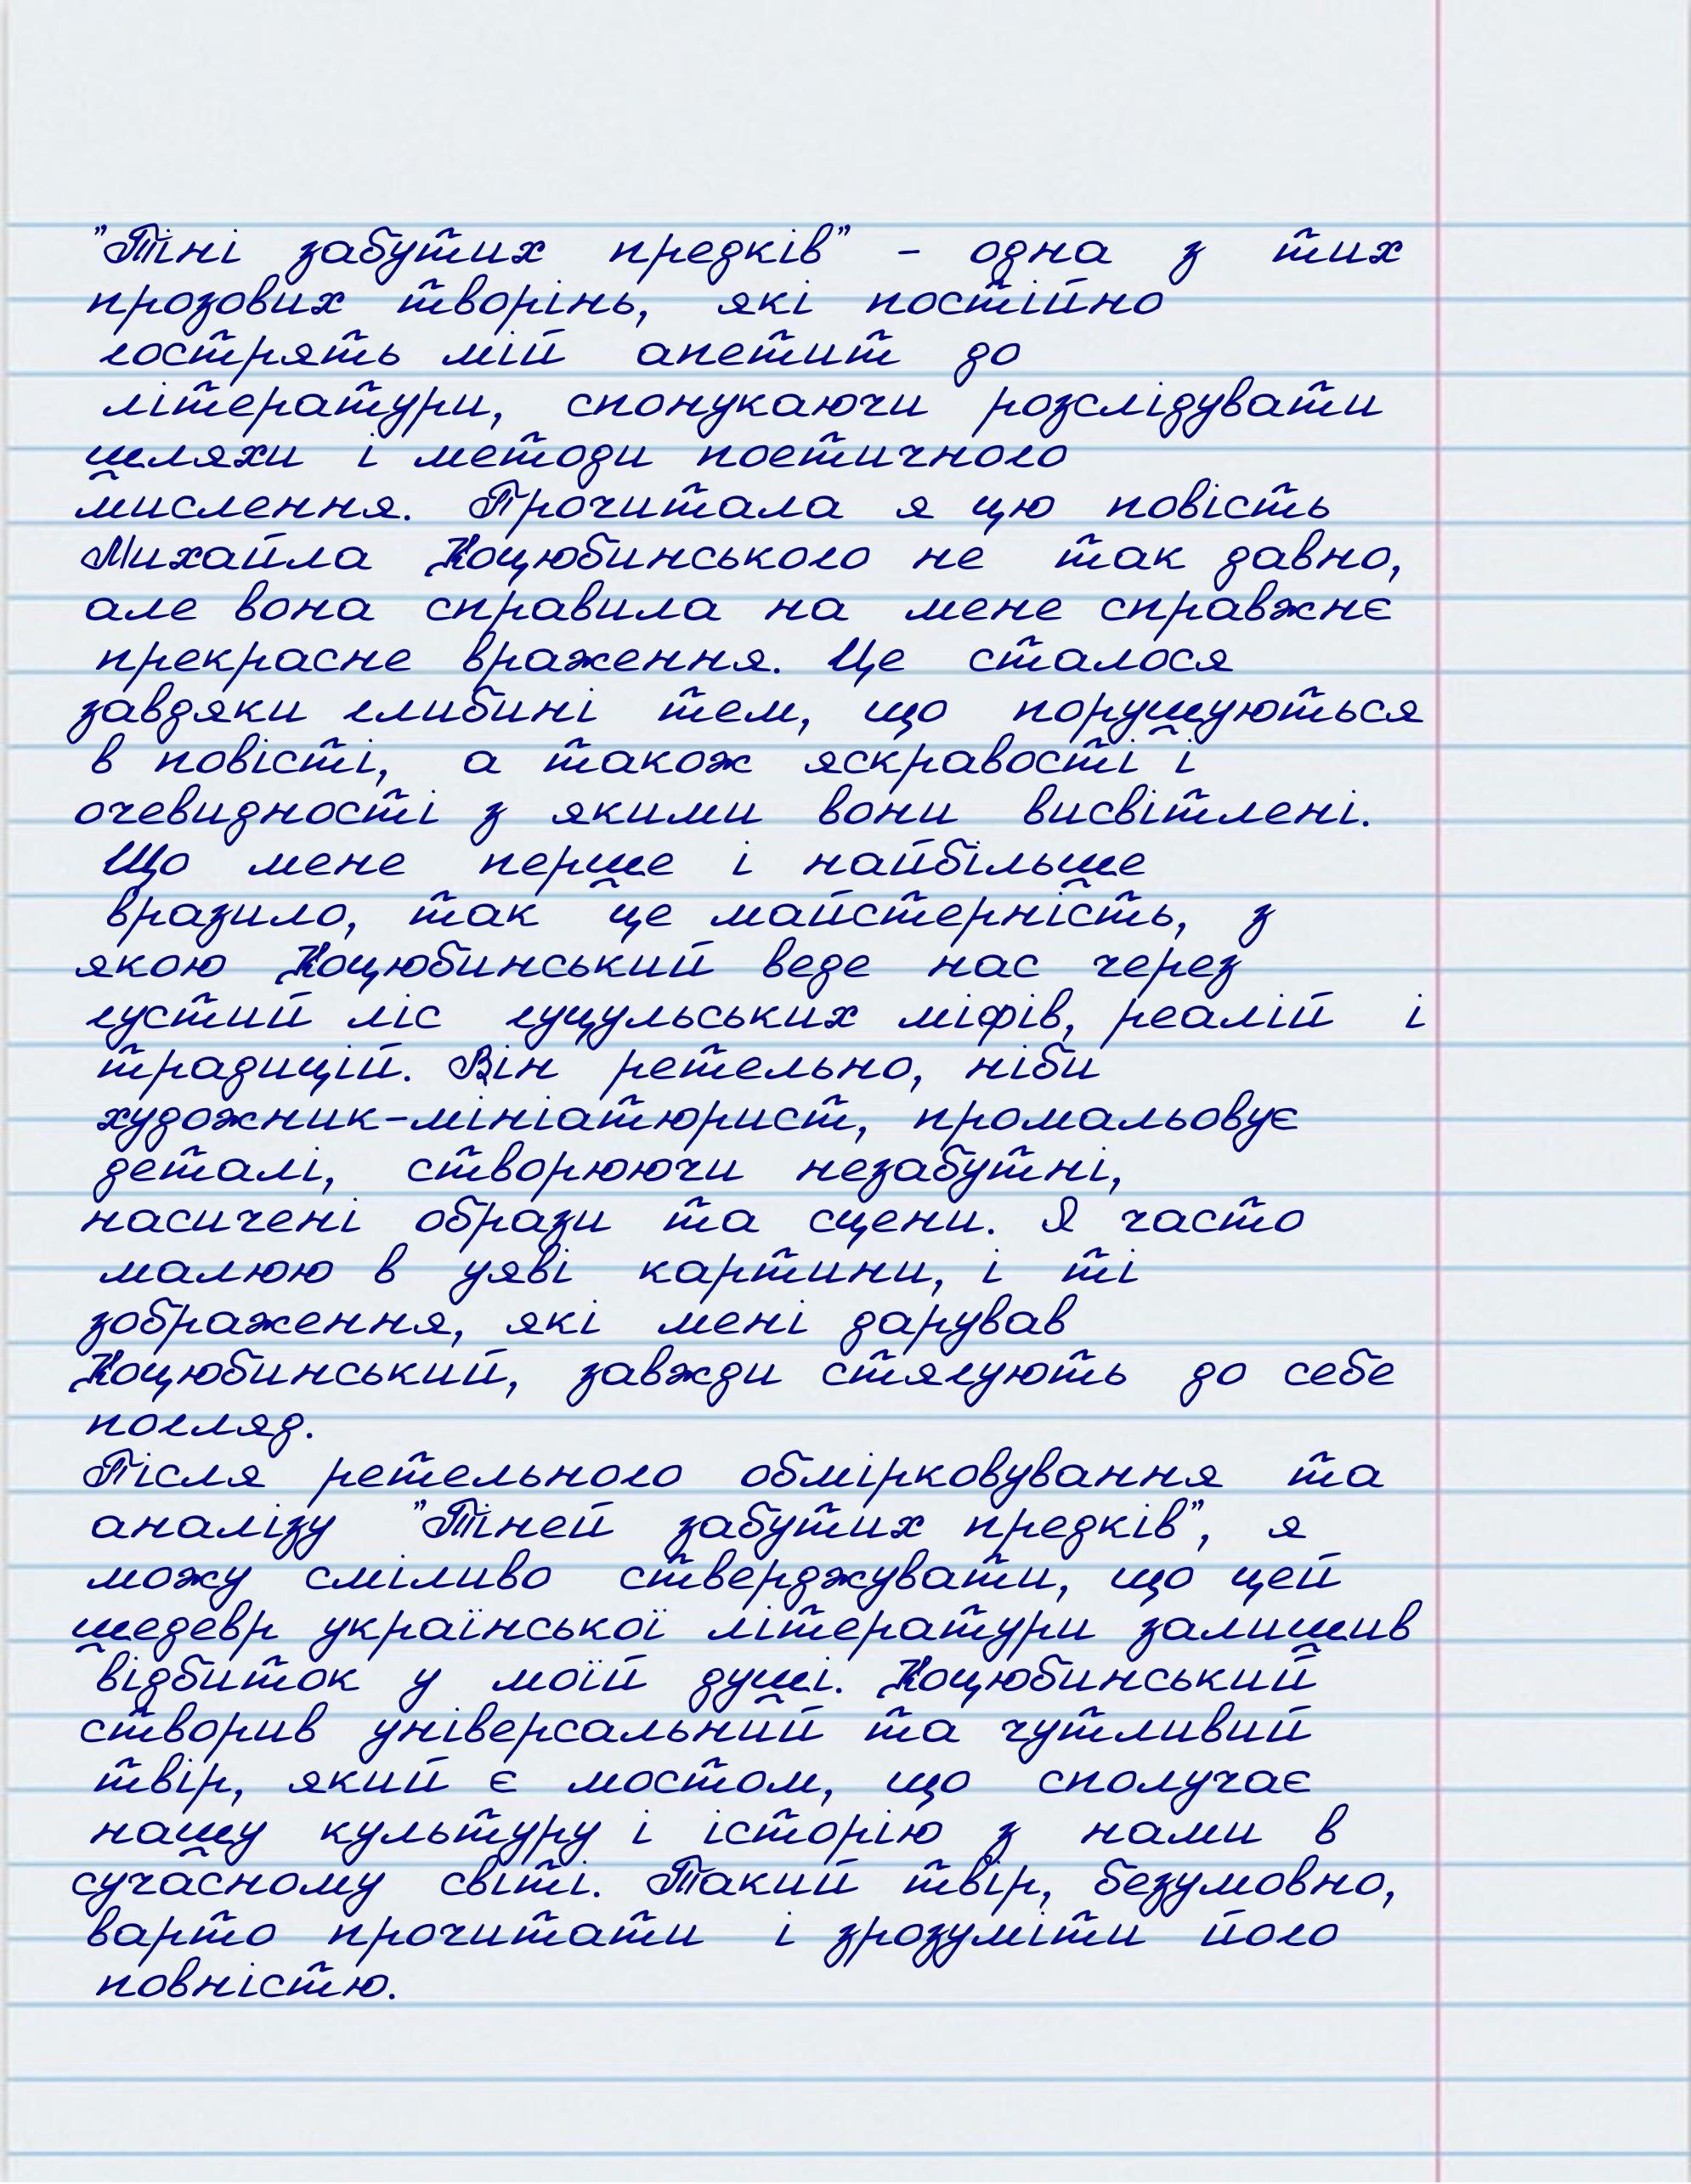 "Тіні забутих предків" - одна з тих
прозових творінь, які постійно
гострять мій апетит до
літератури, спонукаючи розслідувати
шляхи і методи поетичного
мислення. Прочитала я цю повість
Михайла Коцюбинського не так давно,
але вона справила на мене справжнє
прекрасне враження. Це сталося
завдяки глибині тем, що порушуються
в повісті, а також яскравості і
очевидності з якими вони висвітлені.
Що мене перше і найбільше
вразило, так це майстерність, з
якою Коцюбинський веде нас через
густий ліс гуцульських міфів, реалій і
традицій. Він ретельно, ніби
художник-мініатюрист, промальовує
деталі, створюючи незабутні,
насичені образи та сцени. Я часто
малюю в уяві картини, і ті
зображення, які мені дарував
Коцюбинський, завжди стягують до себе
погляд.
Після ретельного обмірковування та
аналізу "Тіней забутих предків", я
можу сміливо стверджувати, що цей
шедевр української літератури залишив
відбиток у моїй душі. Коцюбинський
створив універсальний та чутливий
твір, який є мостом, що сполучає
нашу культуру і історію з нами в
сучасному світі. Такий твір, безумовно,
варто прочитати і зрозуміти його
повністю.